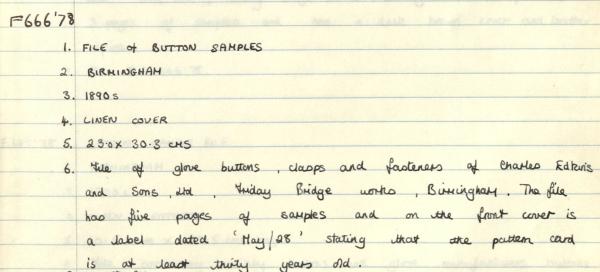 F666'78
1. FILE of BUTTON SAMPLES
2. BIRMINGHAM
3. 1890s
4. LINEN COVER
5. 23.0 x 30.3 CMS
6. File of glove buttons, clasps and fasteners of Charles
and Sons, Ltd, Friday Bridge works, Birmingham. The file
has five pages of samples and on the front cover is
a label dated 'May/28' stating that the pattern card
is at least thirty years old.